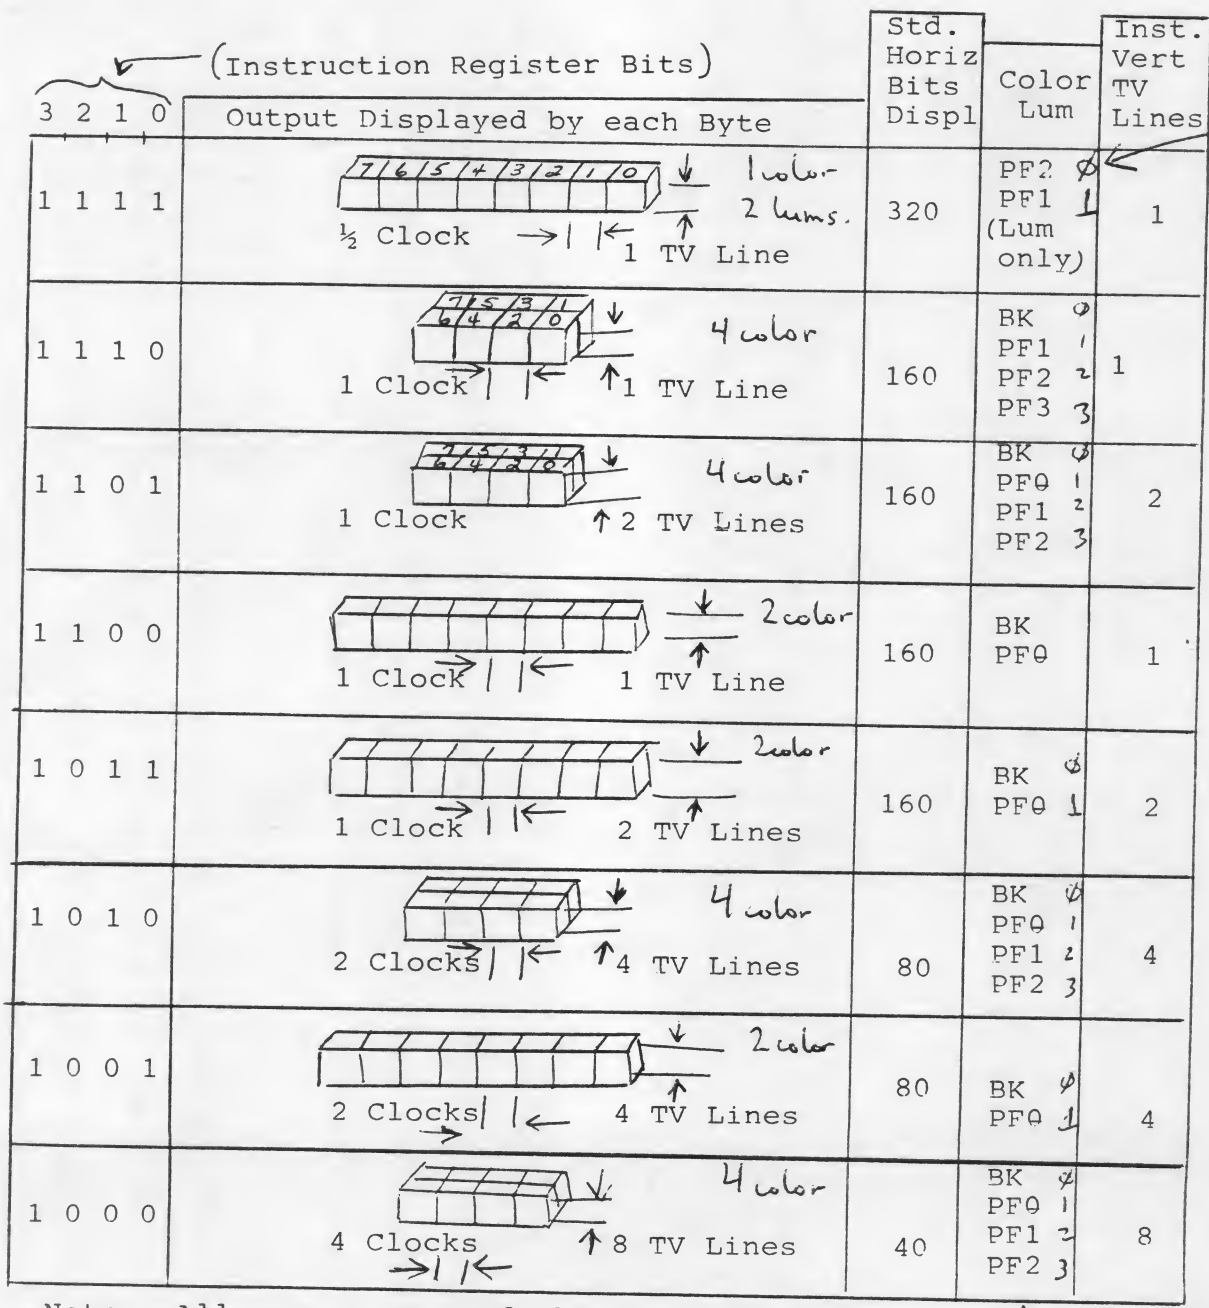 (Instruction Register Bits)
3 2 1 0
Output Displayed by each Byte
Std. Horiz Bits Displ
Color Lum
Inst. Vert TV Lines
1 1 1 1
7 6 5 4 3 2 1 0
1 color
2 lums.
½ Clock
1 TV Line
320
PF2 0
PF1 1
(Lum only)
1
1 1 1 0
7 5 3 1
6 4 2 0
4 color
1 Clock
1 TV Line
160
BK 0
PF1 1
PF2 2
PF3 3
1
1 1 0 1
7 5 3 1
6 4 2 0
4 color
1 Clock
2 TV Lines
160
BK 0
PF0 1
PF1 2
PF2 3
2
1 1 0 0
2 color
1 Clock
1 TV Line
160
BK
PF0
1
1 0 1 1
2 color
1 Clock
2 TV Lines
160
BK 0
PF0 1
2
1 0 1 0
4 color
2 Clocks
4 TV Lines
80
BK 0
PF0 1
PF1 2
PF2 3
4
1 0 0 1
2 color
2 Clocks
4 TV Lines
80
BK 0
PF0 1
4
1 0 0 0
4 color
4 Clocks
8 TV Lines
40
BK 0
PF0 1
PF1 2
PF2 3
8